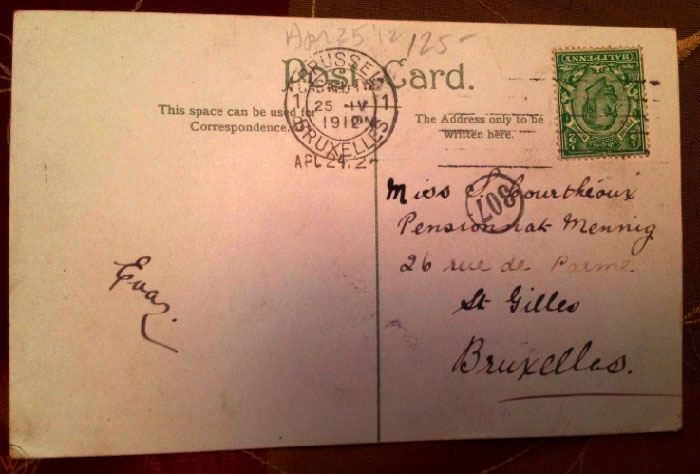 Apr 25 '12 125-
Post Card.
BRUSSEL
1 1
25 IV
1912
BRUXELLES
This space can be used for
Correspondence.
The Address only to be
written here.
APL 24.
HALFPENNY
307
Miss S. Courthéoux
Pensionnat Mennig
26 rue de Parme
St Gilles
Bruxelles.
Eva.